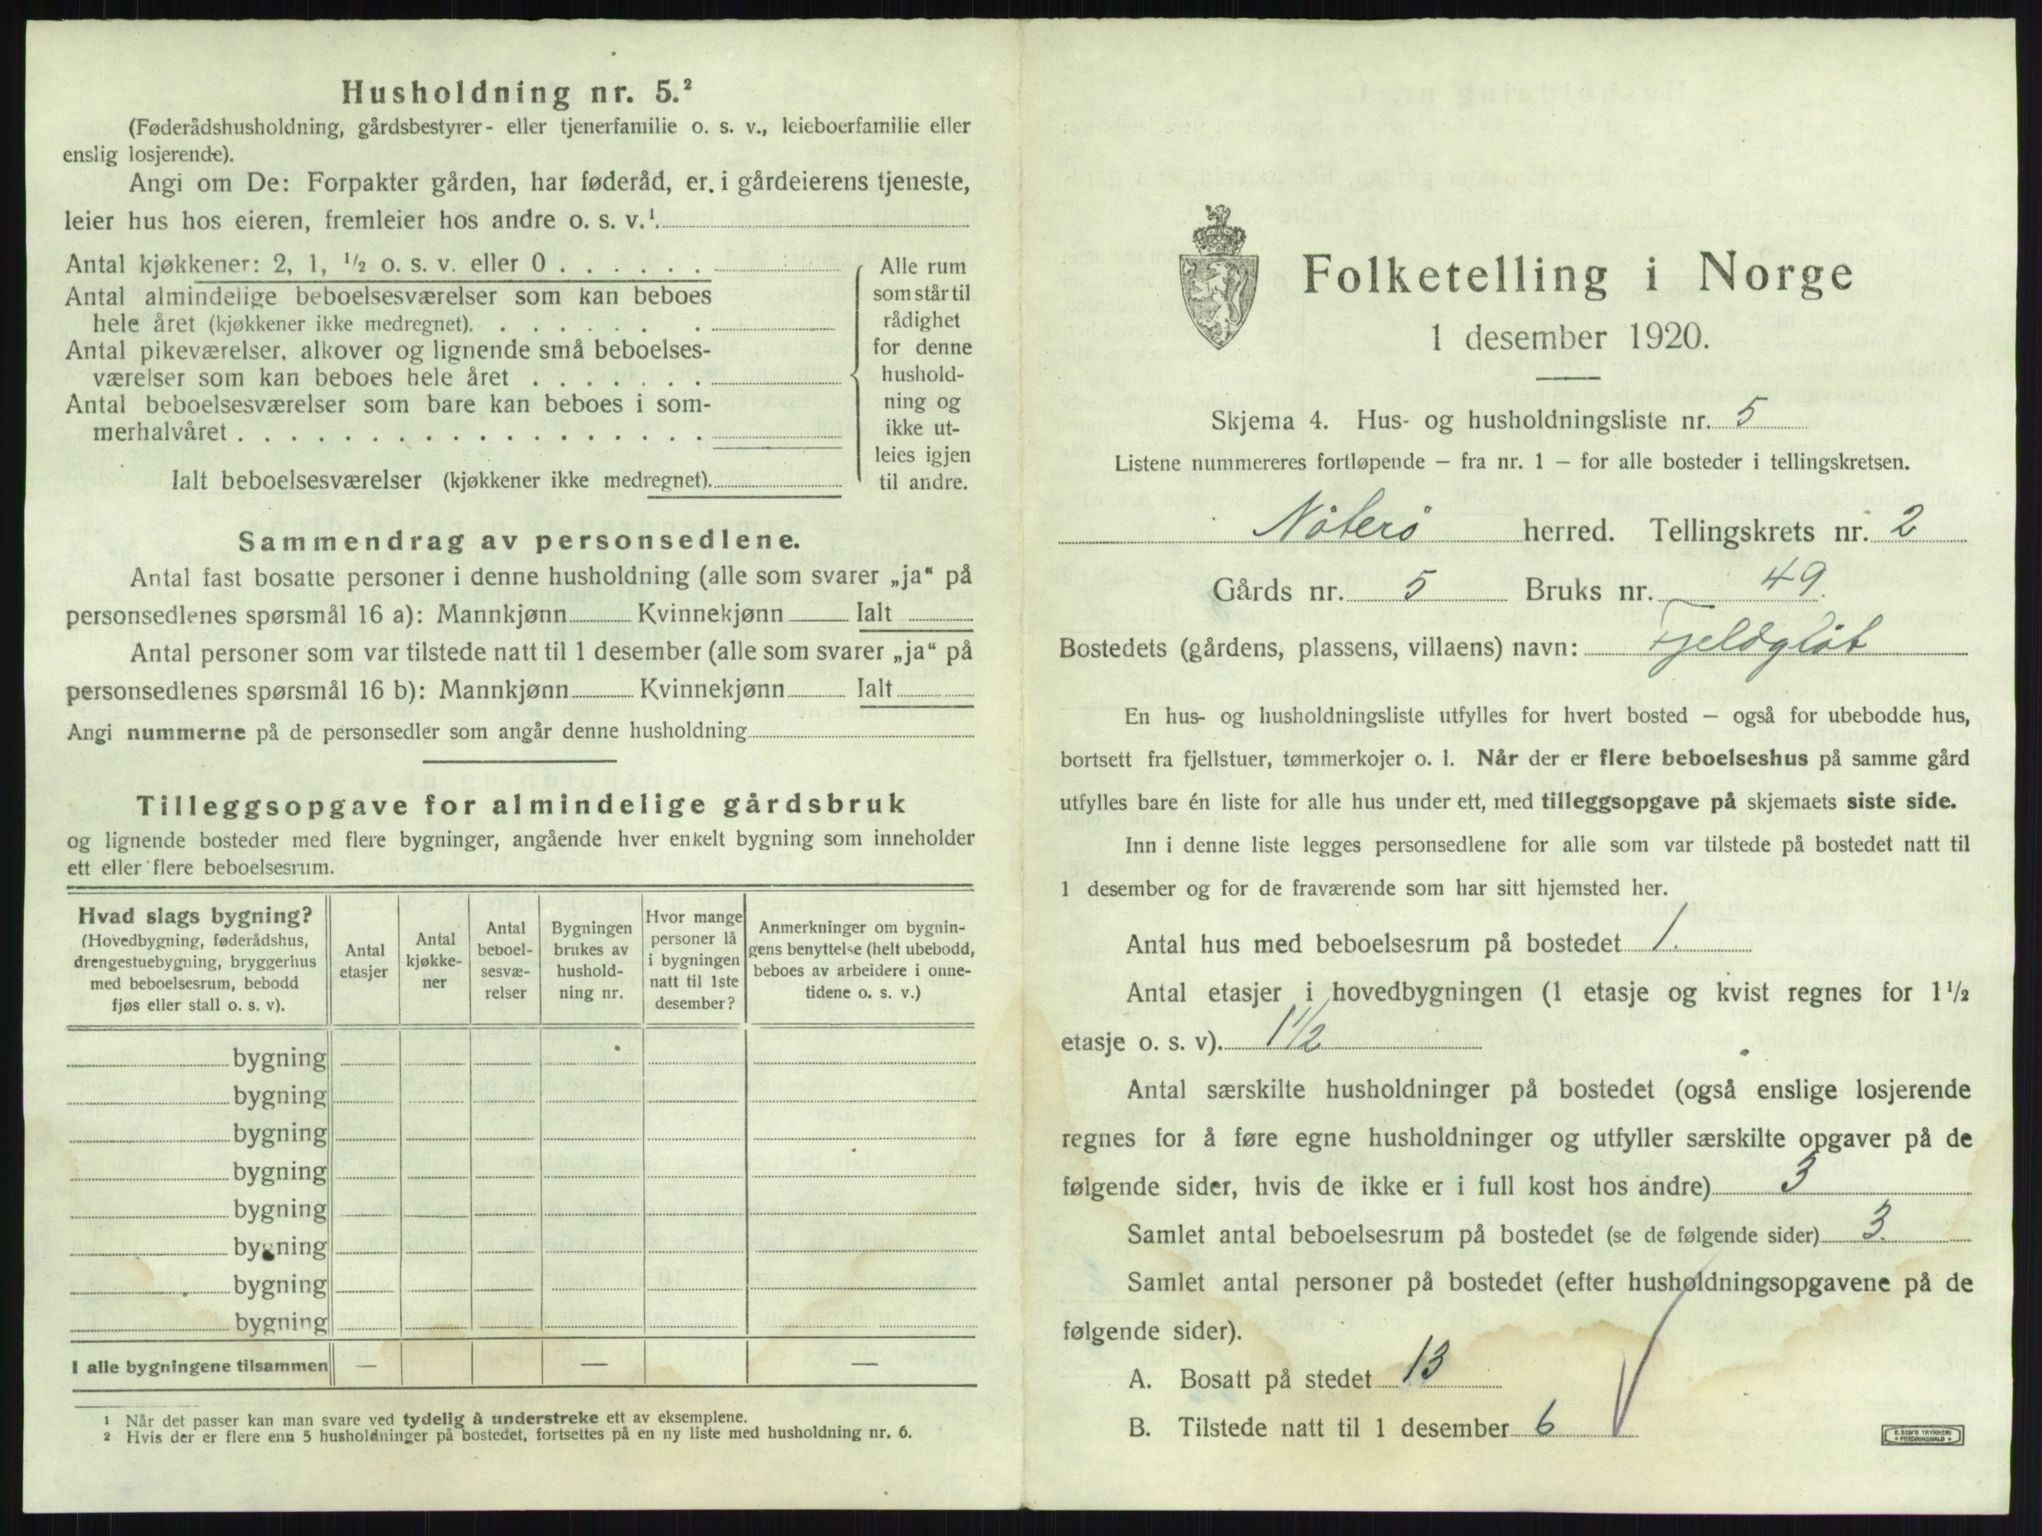 Husholdning nr. 5.²
(Føderådshusholdning, gårdsbestyrer- eller tjenerfamilie o. s. v., leieboerfamilie eller
enslig losjerende).
Angi om De: Forpakter gården, har føderåd, er i gårdeierens tjeneste,
leier hus hos eieren, fremleier hos andre o. s. v.¹
Antal kjøkkener: 2, 1, ½ o. s. v. eller 0 . . . . . .
Antal almindelige beboelsesværelser som kan beboes
hele året (kjøkkener ikke medregnet). . . . . . . .
Antal pikeværelser, alkover og lignende små beboelses-
værelser som kan beboes hele året . . . . . . .
Antal beboelsesværelser som bare kan beboes i som-
merhalvåret . . . . . . . . . . . . . . . . . .
Ialt beboelsesværelser (kjøkkener ikke medregnet).
Alle rum
som står til
rådighet
for denne
hushold-
ning og
ikke ut-
leies igjen
til andre.
Sammendrag av personsedlene.
Antal fast bosatte personer i denne husholdning (alle som svarer „ja“ på
personsedlenes spørsmål 16 a): Mannkjønn Kvinnekjønn Ialt
Antal personer som var tilstede natt til 1 desember (alle som svarer „ja“ på
personsedlenes spørsmål 16 b): Mannkjønn Kvinnekjønn Ialt
Angi nummerne på de personsedler som angår denne husholdning
Tilleggsopgave for almindelige gårdsbruk
og lignende bosteder med flere bygninger, angående hver enkelt bygning som inneholder
ett eller flere beboelsesrum.
Hvad slags bygning?
(Hovedbygning, føderådshus,
drengestuebygning, bryggerhus
med beboelsesrum, bebodd
fjøs eller stall o. s. v).
Antal
etasjer
Antal
kjøkke-
ner
Antal
beboel-
sesvæ-
relser
Bygningen
brukes av
hushold-
ning nr.
Hvor mange
personer lå
i bygningen
natt til 1ste
desember?
Anmerkninger om bygnin-
gens benyttelse (helt ubebodd,
beboes av arbeidere i onne-
tidene o. s. v.)
bygning
bygning
bygning
bygning
bygning
bygning
bygning
bygning
I alle bygningene tilsammen — — —
1 Når det passer kan man svare ved tydelig å understreke ett av eksemplene.
2 Hvis der er flere enn 5 husholdninger på bostedet, fortsettes på en ny liste med husholdning nr. 6.
Folketelling i Norge
1 desember 1920.
Skjema 4. Hus- og husholdningsliste nr. 5
Listene nummereres fortløpende – fra nr. 1 – for alle bosteder i tellingskretsen.
Nøterø herred. Tellingskrets nr. 2
Gårds nr. 5 Bruks nr. 49.
Bostedets (gårdens, plassens, villaens) navn: Fjeldgløt
En hus- og husholdningsliste utfylles for hvert bosted – også for ubebodde hus,
bortsett fra fjellstuer, tømmerkojer o. l. Når der er flere beboelseshus på samme gård
utfylles bare én liste for alle hus under ett, med tilleggsopgave på skjemaets siste side.
Inn i denne liste legges personsedlene for alle som var tilstede på bostedet natt til
1 desember og for de fraværende som har sitt hjemsted her.
Antal hus med beboelsesrum på bostedet 1.
Antal etasjer i hovedbygningen (1 etasje og kvist regnes for 1½
etasje o. s. v). 1½
Antal særskilte husholdninger på bostedet (også enslige losjerende
regnes for å føre egne husholdninger og utfyller særskilte opgaver på de
følgende sider, hvis de ikke er i full kost hos andre) 3
Samlet antal beboelsesrum på bostedet (se de følgende sider) 3.
Samlet antal personer på bostedet (efter husholdningsopgavene på de
følgende sider).
A. Bosatt på stedet 13
B. Tilstede natt til 1 desember 6